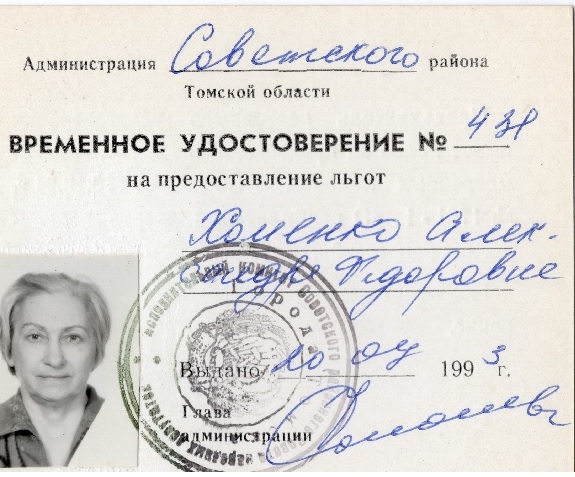 Администрация Советского района
Томской области
ВРЕМЕННОЕ УДОСТОВЕРЕНИЕ №
на предоставление льгот
Хоменко Алек-
сандре Тодоровне
Выдано 20 04 1993 г.
Глава
администрации